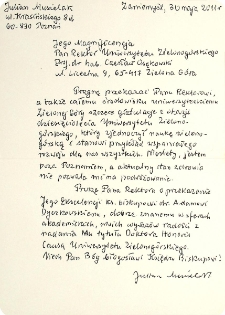 Julian Musielak
ul. Krasińskiego 8
60-830 Poznań
Zaniemyśl, 30 maja 2011 r.
Jego Magnificencja
Pan Rektor Uniwersytetu Zielonogórskiego
Prof. dr hab. Czesław Osękowski
ul. Licealna 9, 65-417 Zielona Góra
Pragnę przekazać Panu Rektorowi,
a także całemu środowisku uniwersyteckiemu
Zielonej Góry szczere gratulacje z okazji
dziesięciolecia Uniwersytetu Zielono-
górskiego, który zjednoczył naukę zielono-
górską i stanowi przykład wspaniałego
rozwoju dla nas wszystkich. Niestety, jestem
poza Poznaniem, a aktualny stan zdrowia
nie pozwala mi na podróżowanie.
Proszę Pana Rektora o przekazanie
Jego Ekscelencji ks. biskupowi dr. Adamowi
Dyczkowskiemu, dobrze znanemu w sferach
akademickich, moich wyrazów radości z
nadania Mu tytułu Doktora Honoris
Causa Uniwersytetu Zielonogórskiego.
Niech Pan Bóg błogosławi Księdzu Biskupowi!
Julian Musielak